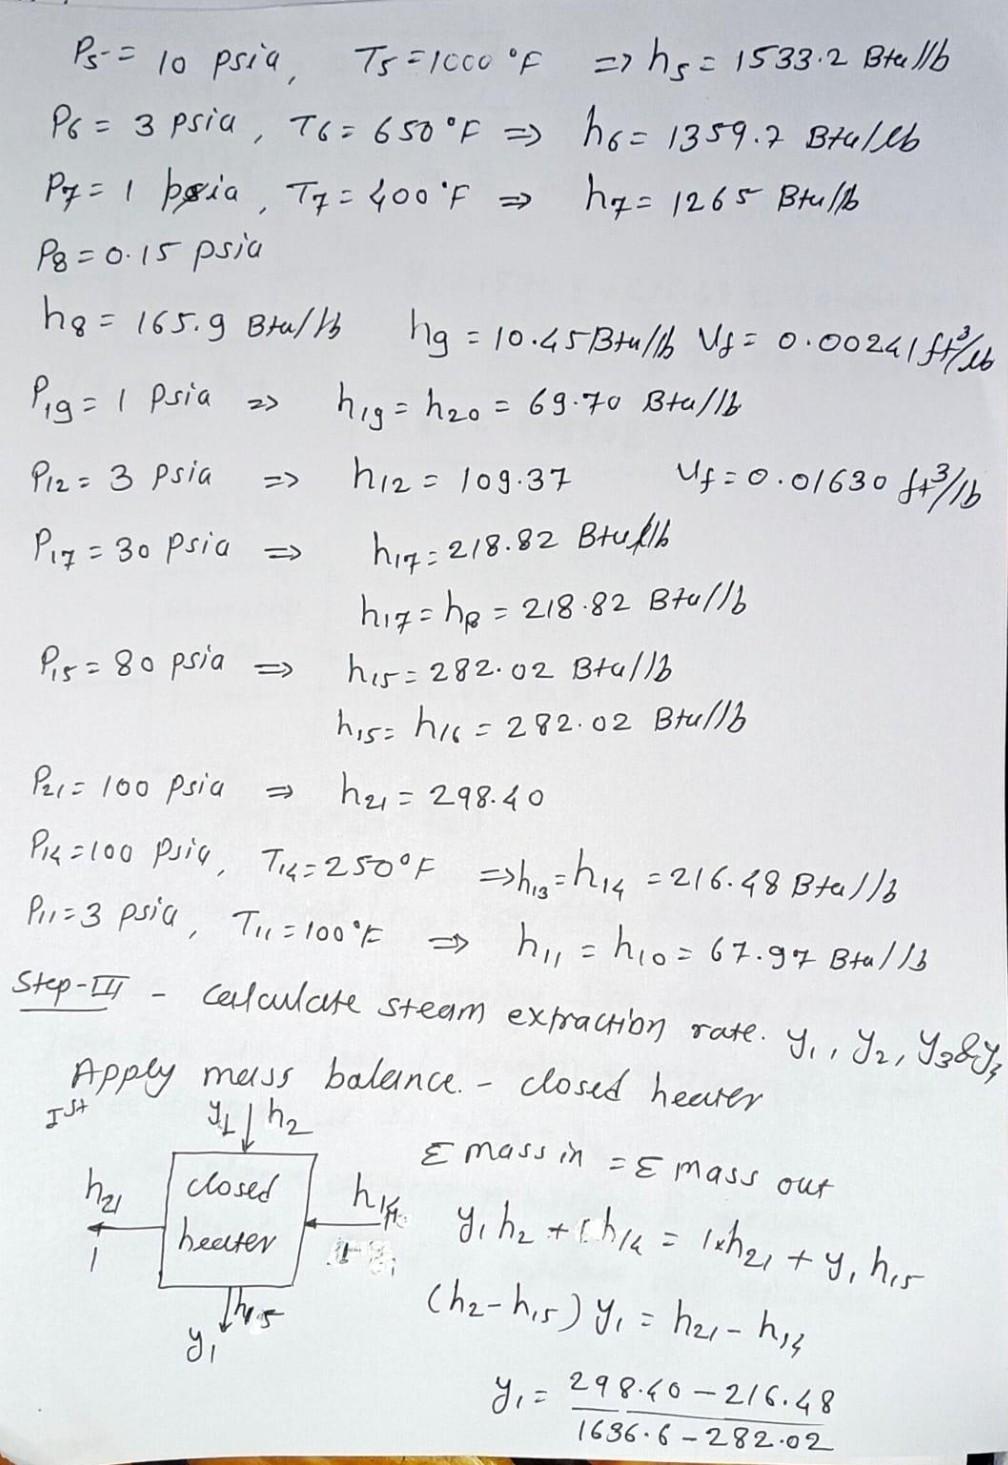 P5 = 10 psia, T5 = 1000 °F => h5 = 1533.2 Btu/lb
P6 = 3 psia, T6 = 650 °F => h6 = 1359.7 Btu/lb
P7 = 1 psia, T7 = 400 °F => h7 = 1265 Btu/lb
P8 = 0.15 psia
h8 = 165.9 Btu/lb h9 = 10.45 Btu/lb Uf = 0.00241 ft³/lb
P19 = 1 Psia => h19 = h20 = 69.70 Btu/lb
P12 = 3 psia => h12 = 109.37 Uf = 0.01630 ft³/lb
P17 = 30 psia => h17 = 218.82 Btu/lb
h17 = h18 = 218.82 Btu/lb
P15 = 80 psia => h15 = 282.02 Btu/lb
h15 = h16 = 282.02 Btu/lb
P21 = 100 psia => h21 = 298.40
P14 = 100 Psia, T14 = 250°F => h13 = h14 = 216.48 Btu/lb
P11 = 3 psia, T11 = 100°F => h11 = h10 = 67.97 Btu/lb
Step-III - Calculate steam extraction rate. y1, y2, y3 &
Apply mass balance - closed heater
Ist
y1 h2
Σ mass in = Σ mass out
h21 closed heater h14
1
y1h2 + 1h14 = 1×h21 + y1h15
h15
y1
(h2 - h15) y1 = h21 - h14
y1 = 298.40 - 216.48
1636.6 - 282.02